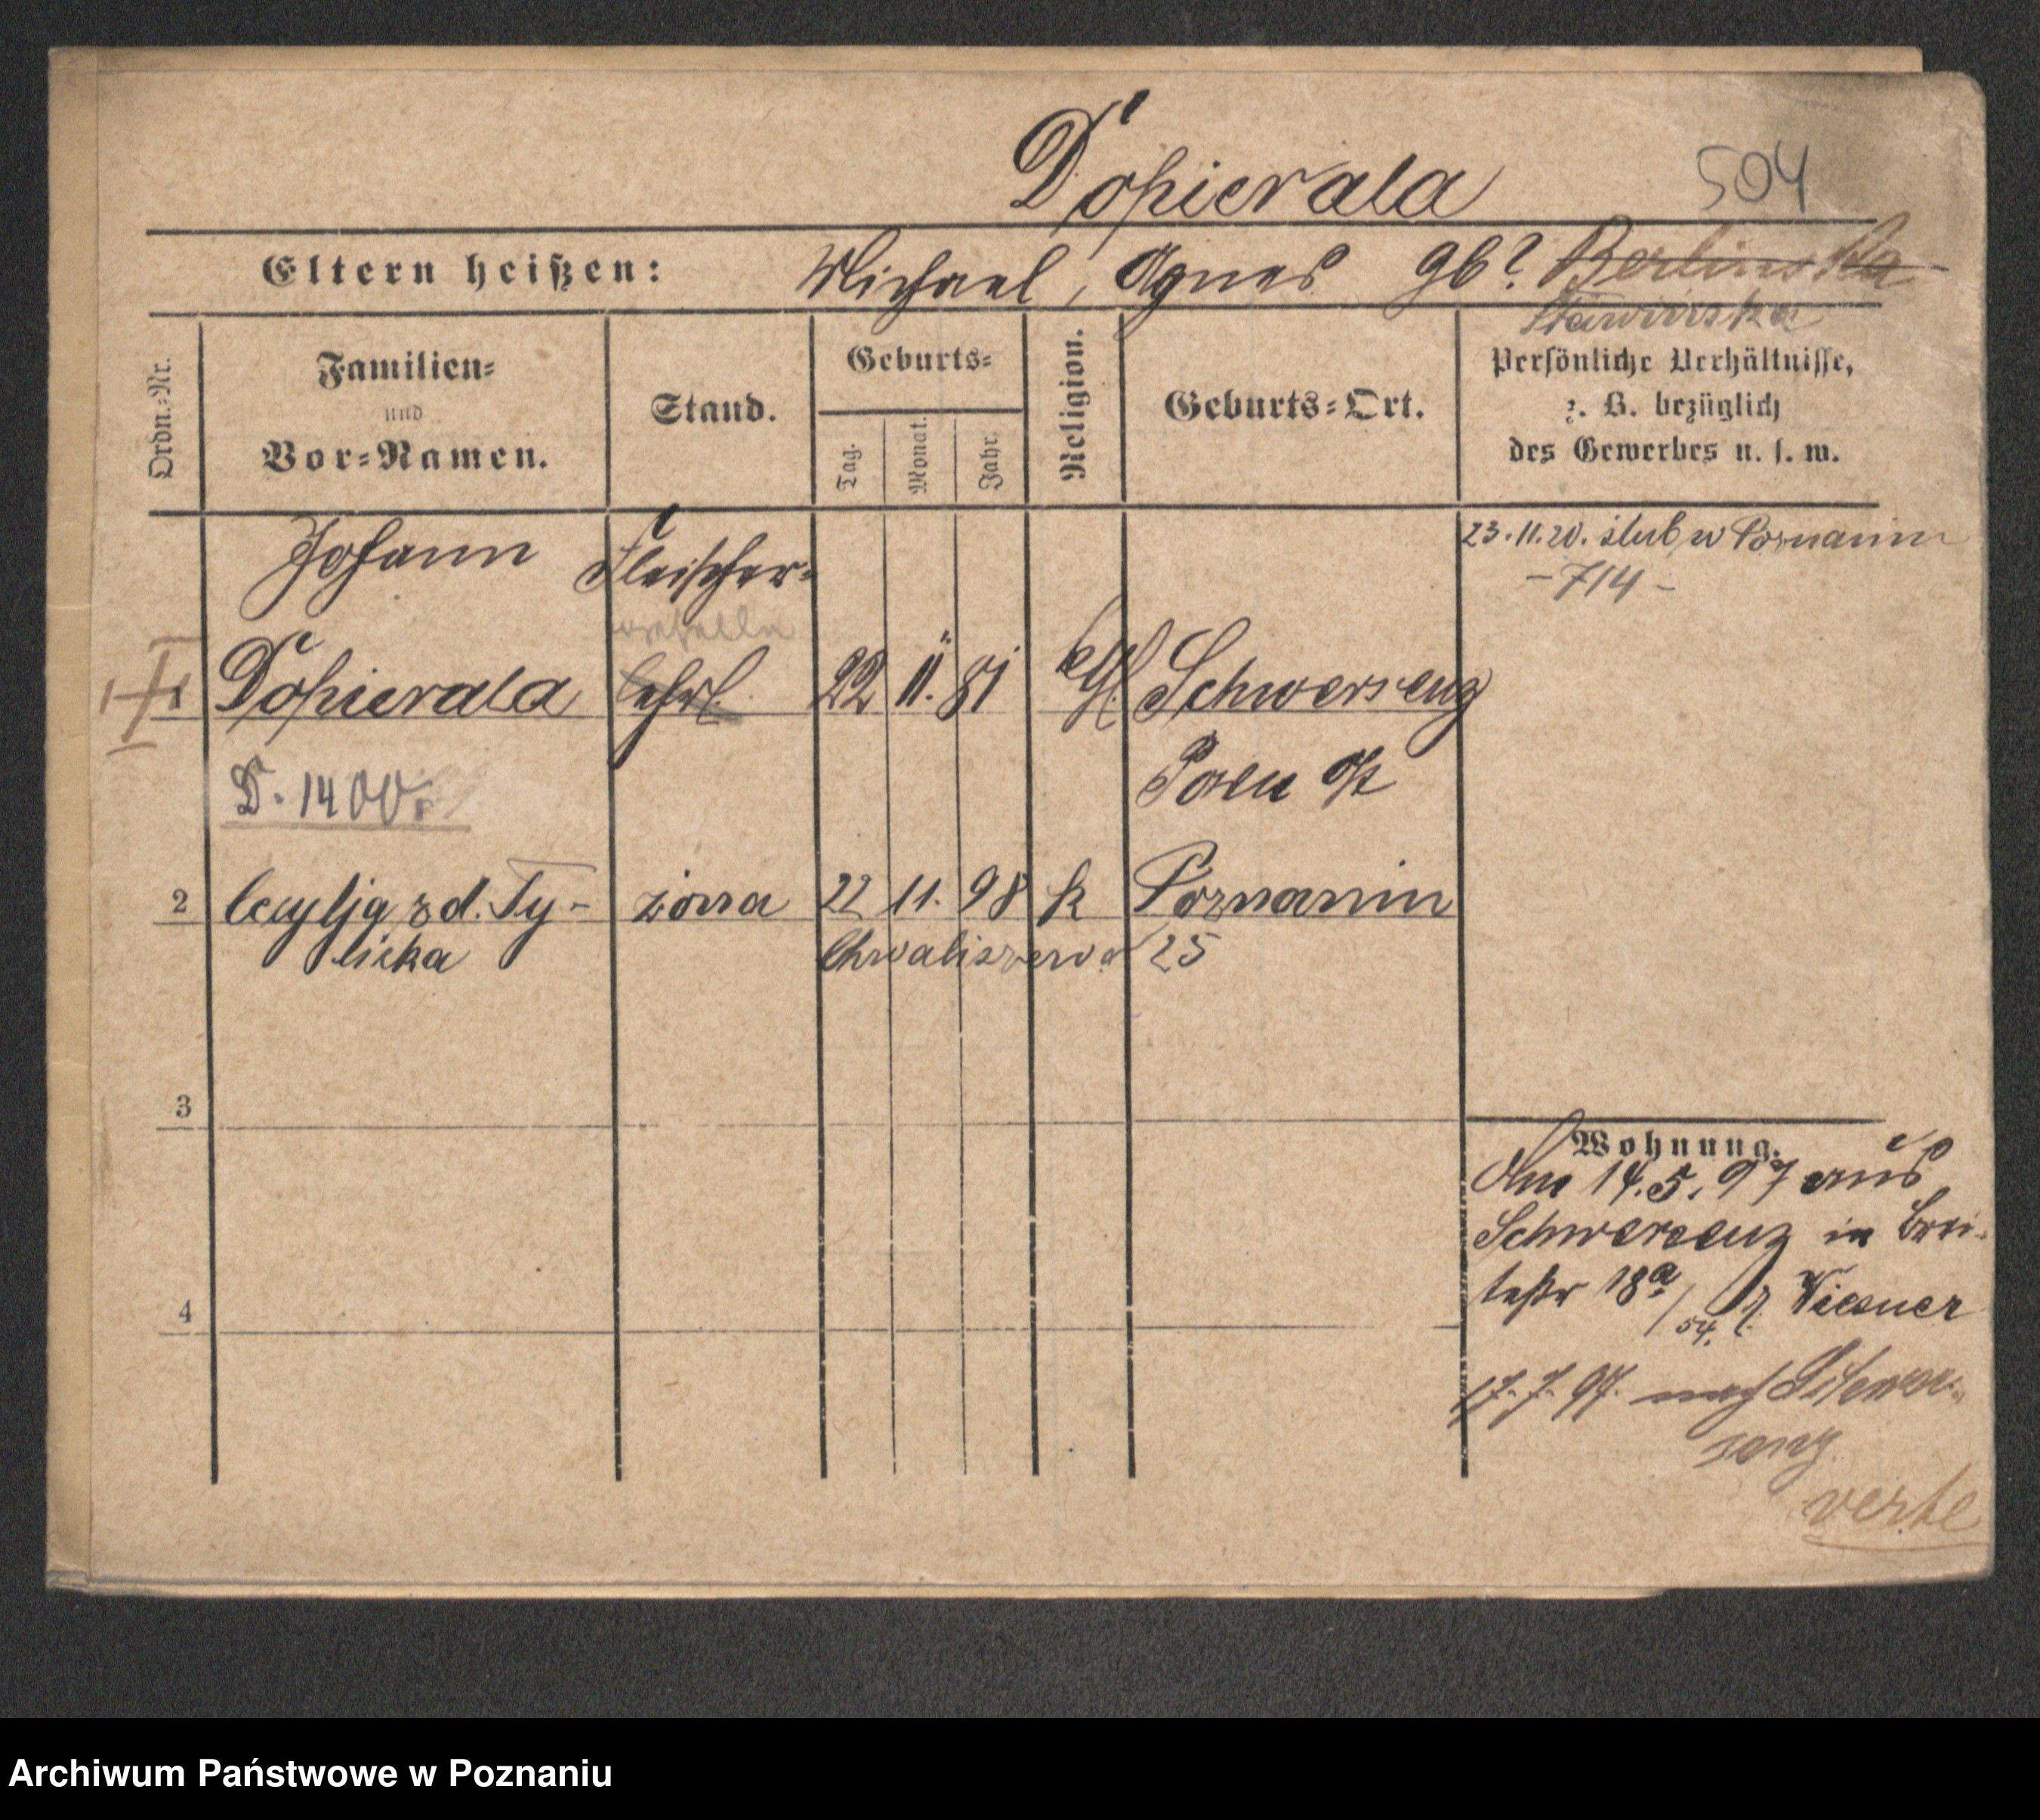 Dopierala 504
Eltern heißen: Michael, Agnes gb? Berlinska
Stawinska
Ordn.=Nr.
Familien=
und
Vor=Namen.
Stand.
Geburts=
Tag.
Monat.
Jahr.
Religion.
Geburts=Ort.
Persönliche Verhältnisse,
z. B. bezüglich
des Gewerbes u. s. w.
Johann Fleischer=
23.11.20. ślub w Poznaniu
-714-
1 Dopierala lehrl. 22 11. 81 kth Schwersenz
D. 1400.
Posen O/
2 Cecylja z d. Ty- żona 22 11. 98 k Poznaniu
licka Chwaliszewo 25
3
4
Wohnung.
Am 14.5.97 aus
Schwersenz in Brei-
testr 18a/54. b. Wiesner
17.7.97. nach Schwer-
senz.
verte
Archiwum Państwowe w Poznaniu